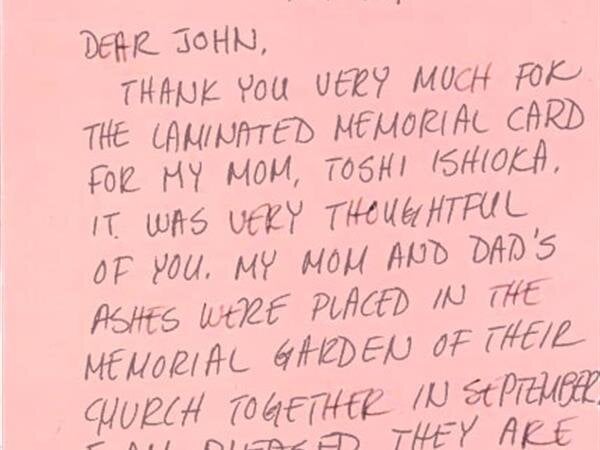 DEAR JOHN,
THANK YOU VERY MUCH FOR
THE LAMINATED MEMORIAL CARD
FOR MY MOM, TOSHI ISHIOKA.
IT WAS VERY THOUGHTFUL
OF YOU. MY MOM AND DAD'S
ASHES WERE PLACED IN THE
MEMORIAL GARDEN OF THEIR
CHURCH TOGETHER IN SEPTEMBER.
I AM PLEASED THEY ARE